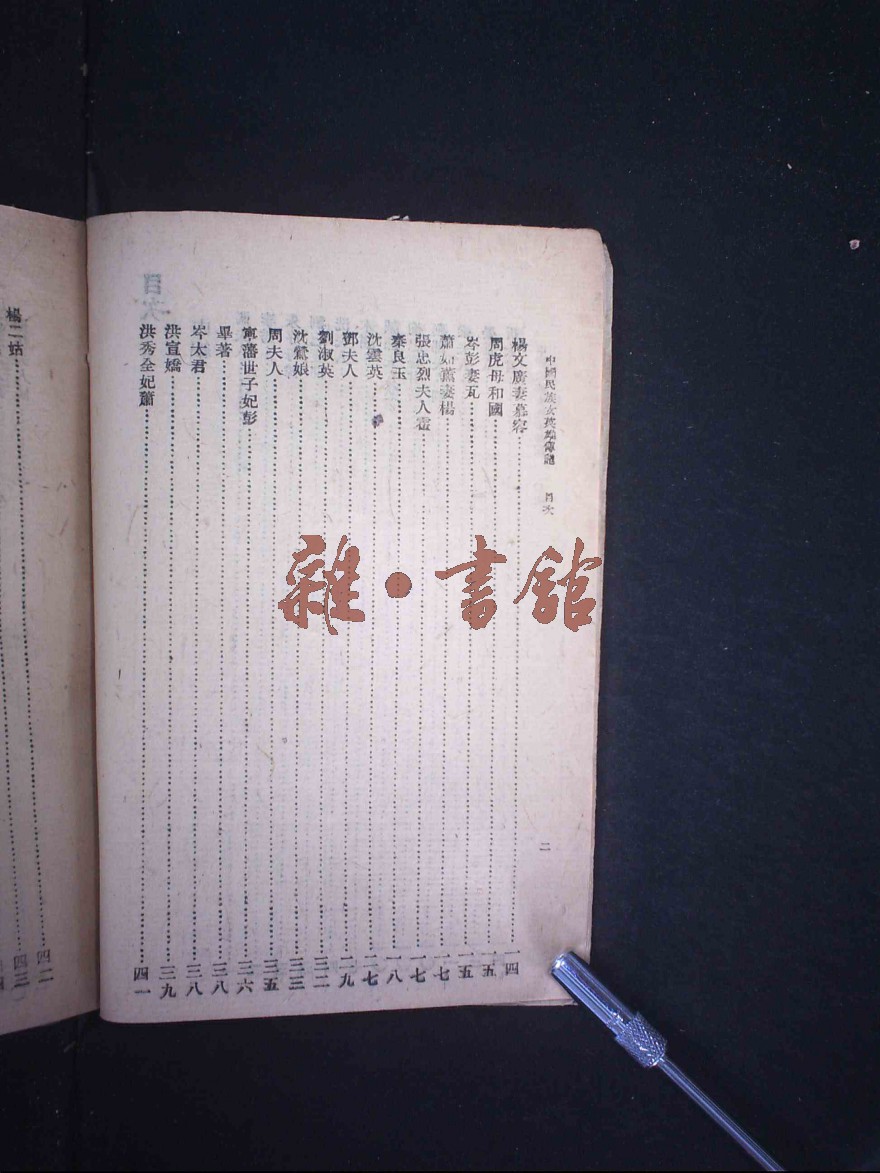 中國民族女英雄傳記 目次 二
楊文廣妻慕容 一四
周虎母和國 一五
岑彭妻瓦 一五
蕭如薰妻楊 一七
張忠烈夫人 一七
秦良玉 一八
沈雲英 二七
鄧夫人 二九
劉淑英 三二
沈鶯娘 三三
周夫人 三五
寧藩世子妃彭 三六
畢著 三八
岑太君 三八
洪宣嬌 三九
洪秀全妃蕭 四一
目次
四二
楊二姑 四三
雜·書館